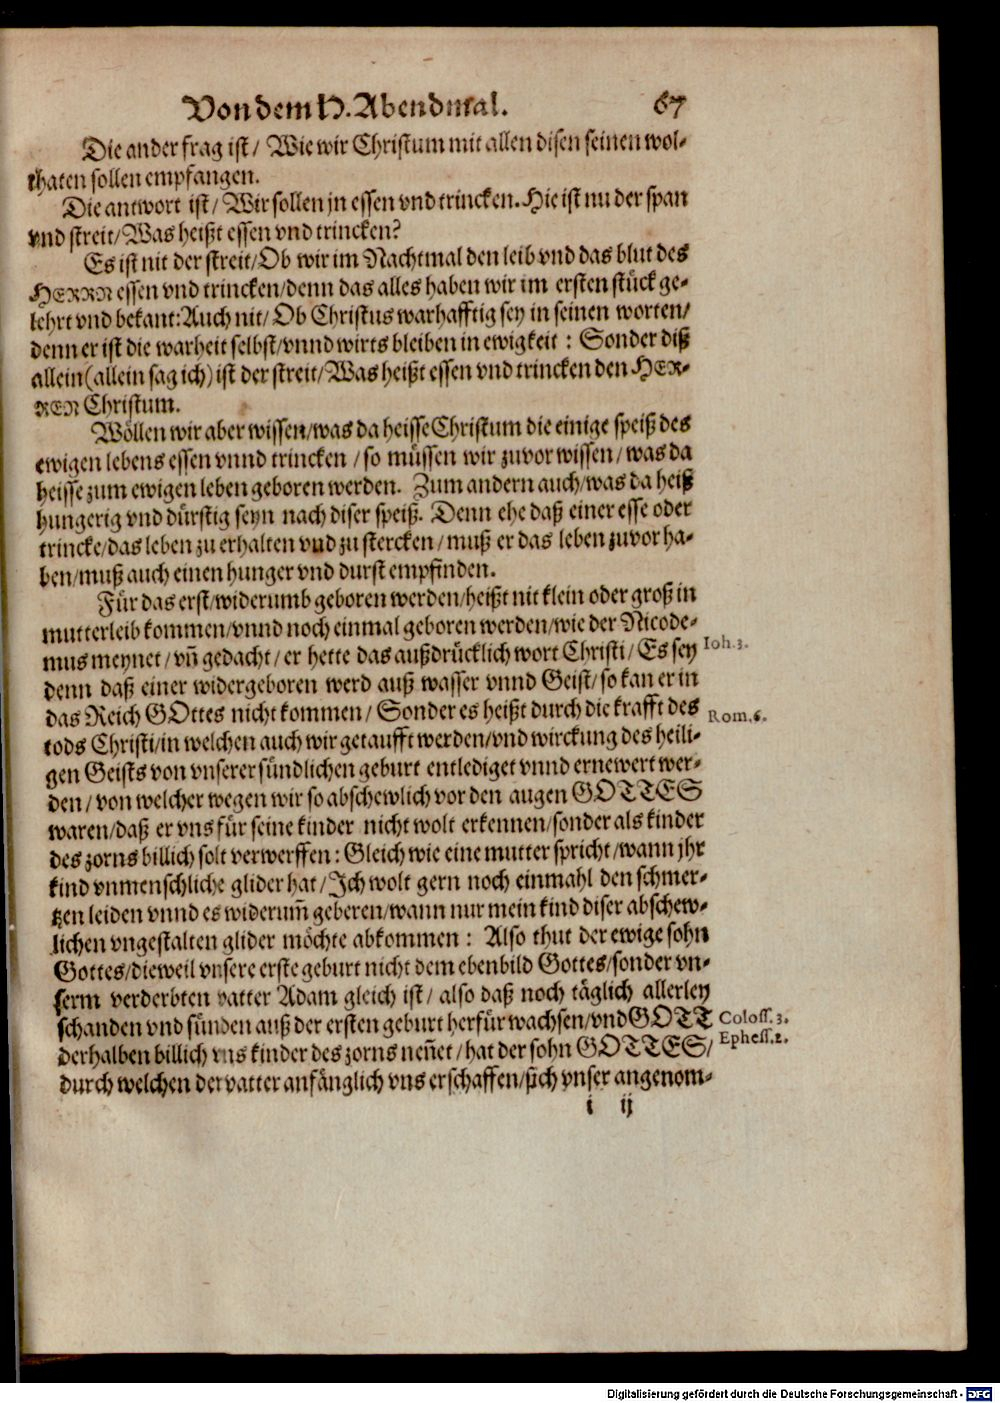 Von dem H. Abendmal. 67
Die ander frag ist/ Wie wir Christum mit allen disen seinen wol-
thaten sollen empfangen.
Die antwort ist/ Wir sollen jn essen vnd trincken. Hie ist nu der span
vnd streit/ Was heißt essen vnd trincken?
Es ist nit der streit/ Ob wir im Nachtmal den leib vnd das blut des
HERRN essen vnd trincken/ denn das alles haben wir im ersten stück ge-
lehrt vnd bekant: Auch nit/ Ob Christus warhafftig sey in seinen worten/
denn er ist die warheit selbst/ vnnd wirts bleiben in ewigkeit : Sonder diß
allein (allein sag ich) ist der streit/ Was heißt essen vnd trincken den HER-
REN Christum.
Wöllen wir aber wissen/ was da heisse Christum die einige speiß des
ewigen lebens essen vnnd trincken / so müssen wir zuvor wissen/ was da
heisse zum ewigen leben geboren werden. Zum andern auch/ was da heiß
hungerig vnd dürstig seyn nach diser speiß. Denn ehe daß einer esse oder
trincke/ das leben zu erhalten vnd zu stercken/ muß er das leben zuvor ha-
ben/ muß auch einen hunger vnd durst empfinden.
Für das erst/ widerumb geboren werden/ heißt nit klein oder groß in
mutterleib kommen/ vnnd noch einmal geboren werden/ wie der Nicode-
mus meynet/ vn̄ gedacht/ er hette das außdrücklich wort Christi/ Es sey Ioh.3.
denn daß einer widergeboren werd auß wasser vnnd Geist/ so kan er in
das Reich GOttes nicht kommen/ Sonder es heißt durch die krafft des Rom.6.
tods Christi/ in welchen auch wir getaufft werden/ vnd wirckung des heili-
gen Geists von vnserer sündlichen geburt entlediget vnnd ernewert wer-
den/ von welcher wegen wir so abschewlich vor den augen GOTTES
waren/ daß er vns für seine kinder nicht wolt erkennen/ sonder als kinder
des zorns billich solt verwerffen: Gleich wie eine mutter spricht/ wann jhr
kind vnmenschliche glider hat/ Ich wolt gern noch einmahl den schmer-
tzen leiden vnnd es widerum̄ geberen/ wann nur mein kind diser abschew-
lichen vngestalten glider möchte abkommen : Also thut der ewige sohn
Gottes/ dieweil vnsere erste geburt nicht dem ebenbild Gottes/ sonder vn-
serm verderbten vatter Adam gleich ist/ also daß noch täglich allerley
schanden vnd sünden auß der ersten geburt herfür wachsen/ vnd GOTT Coloss.3.
derhalben billich vns kinder des zorns nen̄et/ hat der sohn GOTTES/ Ephess.2.
durch welchen der vatter anfänglich vns erschaffen/ sich vnser angenom-
i ij
Digitalisierung gefördert durch die Deutsche Forschungsgemeinschaft - DFG